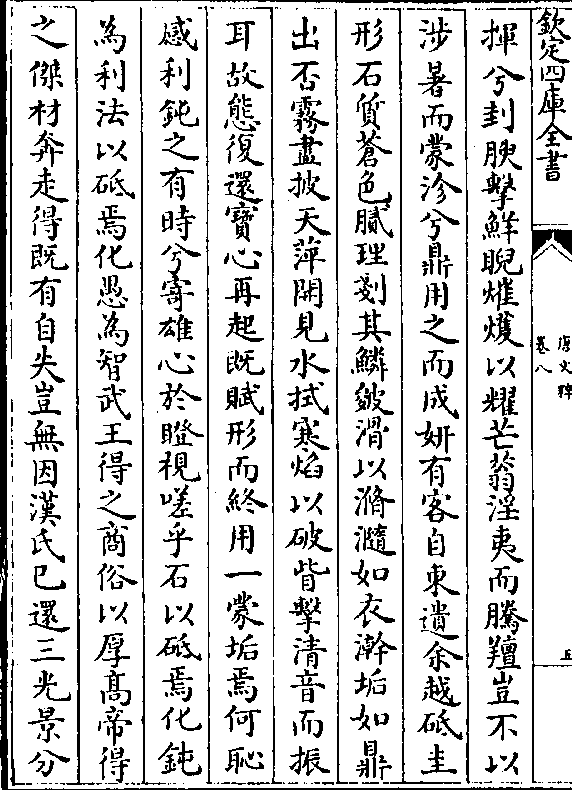 欽定四庫全書
唐文粹
卷八
五
揮兮刲腴擊鮮睨熣㸌以耀芒蓊淫夷而騰羶豈不以
涉暑而蒙沴兮鼎用之而成妍有客自東遺余越砥圭
形石質蒼色膩理剗其鱗皴滑以滫瀡如衣澣垢如鼎
出否霧盡披天萍開見水拭寒焰以破眥擊清音而振
耳故態復還寶心再起既賦形而終用一蒙垢焉何恥
感利鈍之有時兮寄雄心於瞪視嗟乎石以砥焉化鈍
為利法以砥焉化愚為智武王得之商俗以厚髙帝得
之傑材奔走得既有自失豈無因漢氏已還三光景分